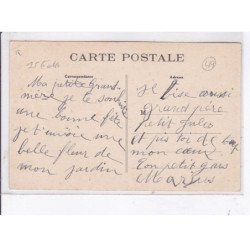 CARTE POSTALE
Correspondance
Adresse
Ma petite Grand
mère je te souhaite
une bonne fête
je t'envoie une
belle fleur de
mon jardin
Je bise aussi
grand père
petit Jules
et puis toi de
mon cœur
Ton petit gars